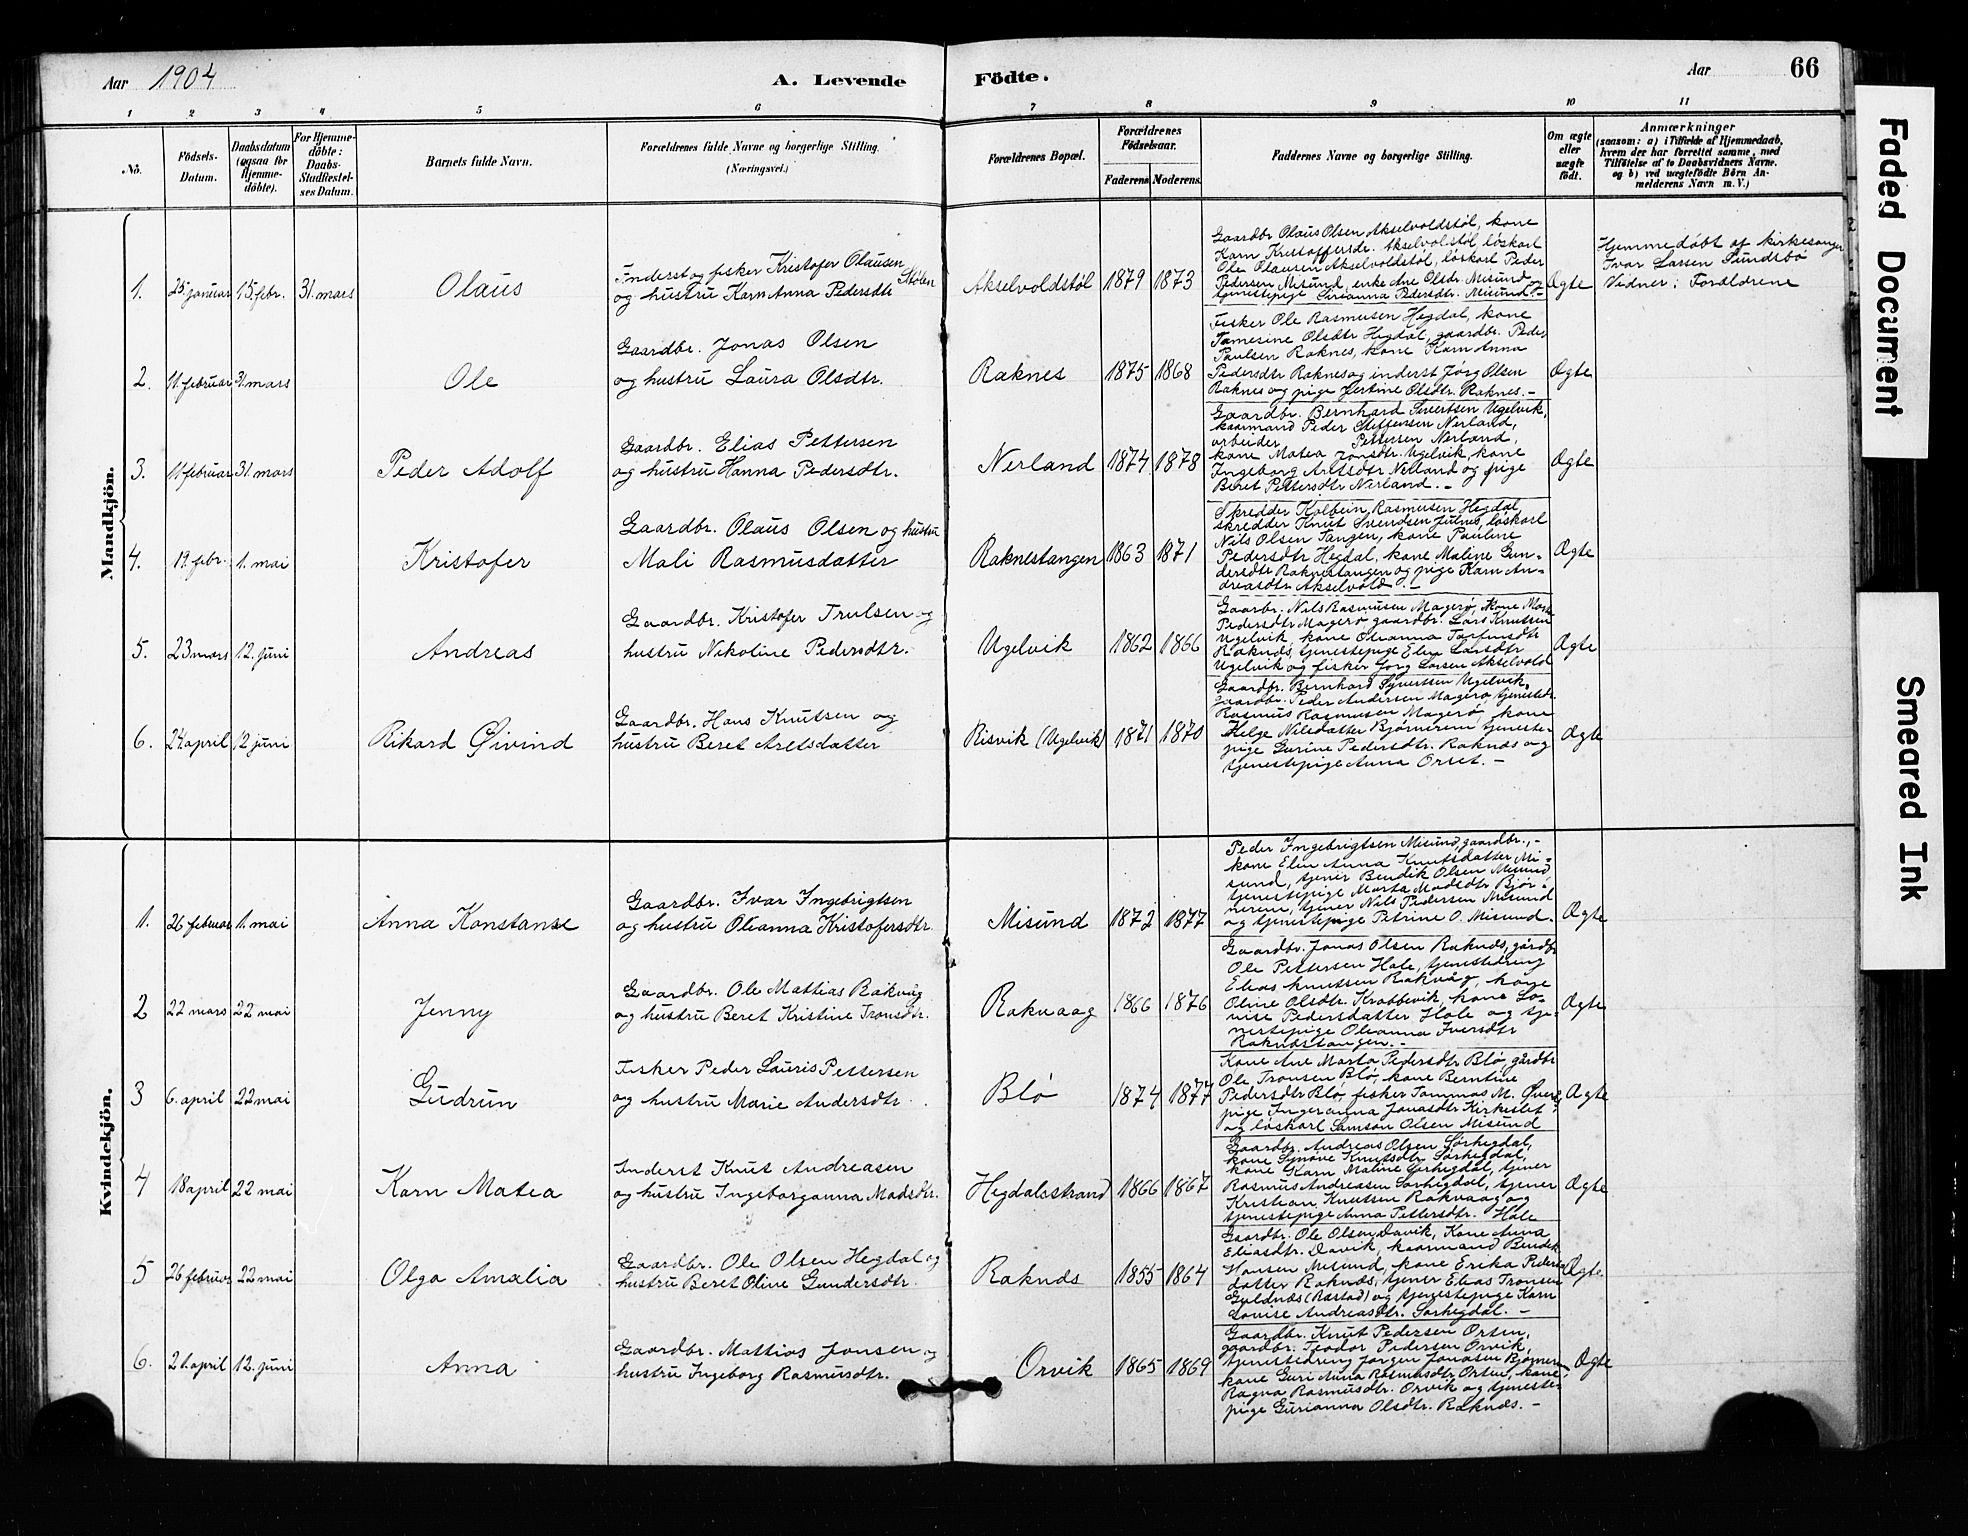 Aar 1904
A. Levende
Födte.
Aar
66
1
2
3
4
5
6
7
8
9
10
11
No.
Födsels-
Datum.
Daabsdatum
(ogsaa for
Hjemme-
döbte).
For Hjemme-
döbte:
Daabs-
Stadfæstel-
ses Datum.
Barnets fulde Navn.
Forældrenes fulde Navne og borgerlige Stilling.
(Næringsvei.)
Forældrenes Bopæl.
Forældrenes
Födselsaar.
Faderens
Moderens.
Faddernes Navne og borgerlige Stilling.
Om ægte
eller
uægte
födt.
Anmærkninger
(saasom: a) i Tilfælde af Hjemmedaab,
hvem der har forrettet samme, med
Tilföielse af to Daabsvidners Navne.
og b) ved uægtefödte Börn An-
melderens Navn m. V.)
Mandkjön.
1. 25 januar 15 febr. 31 mars Olaus
Inderst og fisker Kristofer Olausen Stölen
og hustru Karn Anna Pedersdtr
Akselvoldstöl 1879 1873
Gaardbr Olaus Olsen Akselvoldstöl, kone
Karn Kristoffersdr. Akselvolstöl löskarl
Ole Olausen Akselvoldstöl, löskarl Peder
Pedersen Misund, enke Ane Olsdr Misund og
tjenestepige Sirianna Pedersdtr. Misund.-
Ægte
Hjemmedöbt af kirkesanger
Ivar Larsen Sundsbö
Vidner: Forældrene
2. 11 februar 31 mars Ole
Gaardbr. Jonas Olsen
og hustru Laura Olsdtr.
Raknes 1875 1868
Fisker Ole Rasmusen Hegdal, kone
Tamesine Olsdtr Hegdal, gaardbr. Peder
Paulsen Raknes, kone Karn Anna
Pedersdtr Raknes og inderst Jörg Olsen
Raknes og pige Jertine Olsdtr. Raknes.-
Ægte
3. 11 februar 31 mars Peder Adolf
Gaardbr. Elias Pettersen
og hustru Hanna Pedersdtr.
Nerland 1874 1878
Gaardbr. Bernhard Sivertsen Ugelvik,
kaarmand Peder Steffensen Nerland,
arbeider Pettersen Nerland,
kone Matea Jonsdtr. Ugelvik, kone
Ingeborg Aretsdtr Nerland og pige
Beret Pettersdtr Nerland.-
Ægte
4. 19. febr. 1. mai Kristofer
Gaardbr. Olaus Olsen og hustru
Mali Rasmusdatter
Raknestangen 1863 1871
Skredder Kolbein Rasmusen Hegdal,
skredder Knut Svendsen Julnes, löskarl
Nils Olsen Tangen, kone Pauline
Pedersdtr Hegdal, kone Maline Gun-
dersdtr Raknestangen og pige Karn An-
dreasdtr. Akselvold.-
Ægte
5. 23 mars 12. juni Andreas
Gaardbr. Kristofer Trulsen og
hustru Nikoline Pedersdtr.
Ugelvik 1862 1866
Gaarbr. Nils Rasmusen Magerö, kone
Pedersdtr Magerö gaardbr. Lars Knutsen
Ugelvik, kone Oleanna Torfinsdtr
Raknæs, tjenestepige Elen Larsdtr
Ugelvik og fisker Jörg Larsen Akselvold
Ægte
6. 24 april 12 juni Rikard Øivind
Gaardbr. Hans Knutsen og
hustru Beret Aretsdatter
Risvik (Ugelvik) 1871 1870
Gaardbr. Bernhard Syvertsen Ugelvik,
gaardbr. Peder Andersen Magerö tjenestedr.
Rasmus Rasmusen Magerö, kone
Helge Nilsdatter Bjørnerem tjeneste-
pige Gurine Pedersdtr. Raknæs og
tjenestepige Anna Orset.-
Ægte
Kvindekjön.
1. 26 februar 1. mai Anna Konstanse
Gaardbr. Ivar Ingebrigtsen
og hustru Oleanna Kristofersdtr.
Misund 1872 1877
Peder Ingebrigtsen Misund, gaardbr.,-
kone Elen Anna Knutsdatter Mi-
sund, tjener Bendik Olsen Misund
tjenestepige Marta Madsdtr Bjør-
nerem, tjener Nils Pedersen Misund
og tjenestepige Petrine O. Misund.
Ægte
2 22 mars 22 mai Jenny
Gaardbr. Ole Mattias Rakvåg
og hustru Beret Kristine Tronsdtr.
Rakvaag 1866 1876
Gaardbr. Jonas Olsen Raknæs, gårdbr
Ole Pettersen Hole, tjenestedreng
Elias Knutsen Rakvåg, kone
Oline Olsdtr. Krabbevik, kone Lo-
vise Pedersdatter Hole og tje-
nestepige Oleanna Iversdtr
Raknæstangen.-
Ægte
3 6. april 22 mai Gudrun
Fisker Peder Lauris Pettersen
og hustru Marie Andersdtr.
Blö 1874 1877
Kone Ane Marta Pedersdtr Blö, gårdbr
Ole Tronsen Blö, kone Berntine
Pedersdtr Blö, fisker Tommas M.
pige Ingeranna Jonasdtr Kirkeslet
og löskarl Samson Olsen Misund
Ægte
4 18 april 22 mai Karn Matea
Inderst Knut Andreasen
og hustru Ingeborganna Madsdtr.
Hegdalsstrand 1866 1867
Gaardbr. Andreas Olsen Sørhegdal,
kone Synøve Knutsdtr Sørhegdal,
kone Karn Maline Sørhegdal, tjener
Rasmus Andreasen Sørhegdal, tjener
Kristian Knutsen Rakvaag og
tjenestepige Anna Pettersdtr. Hole
Ægte
5 26 februar 22 mai Olga Amalia
Gaardbr. Ole Olsen Hegdal og
hustru Beret Oline Gundersdtr.
Raknæs 1855 1864
Gaardbr. Ole Olsen Davik, Kone Anna
Eliasdtr. Davik, kaarmand Bendik
Hansen Misund, kone Erika Peders-
datter Raknæs, tjener Elias Tronsen
Guldnæs (Ræstad) og tjenestepige Karn
Lovise Andreasdtr. Sørhegdal.-
Ægte
6. 21. april 12. juni Anna
Gaardbr. Mattias Jonsen og
hustru Ingeborg Rasmusdtr.
Orvik 1865 1869
Gaardbr. Knut Pedersen Orten,
gaardbr. Teodor Pedersen Orvik,
tjenestedreng Jørgen Jonasen Bjørnerem
kone Guri Anna Rasmusdtr Orten, kone
Ragna Rasmusdtr. Orvik og tjeneste-
pige Gurianna Olsdtr. Raknæs.-
Ægte
Faded Document
Smeared Ink